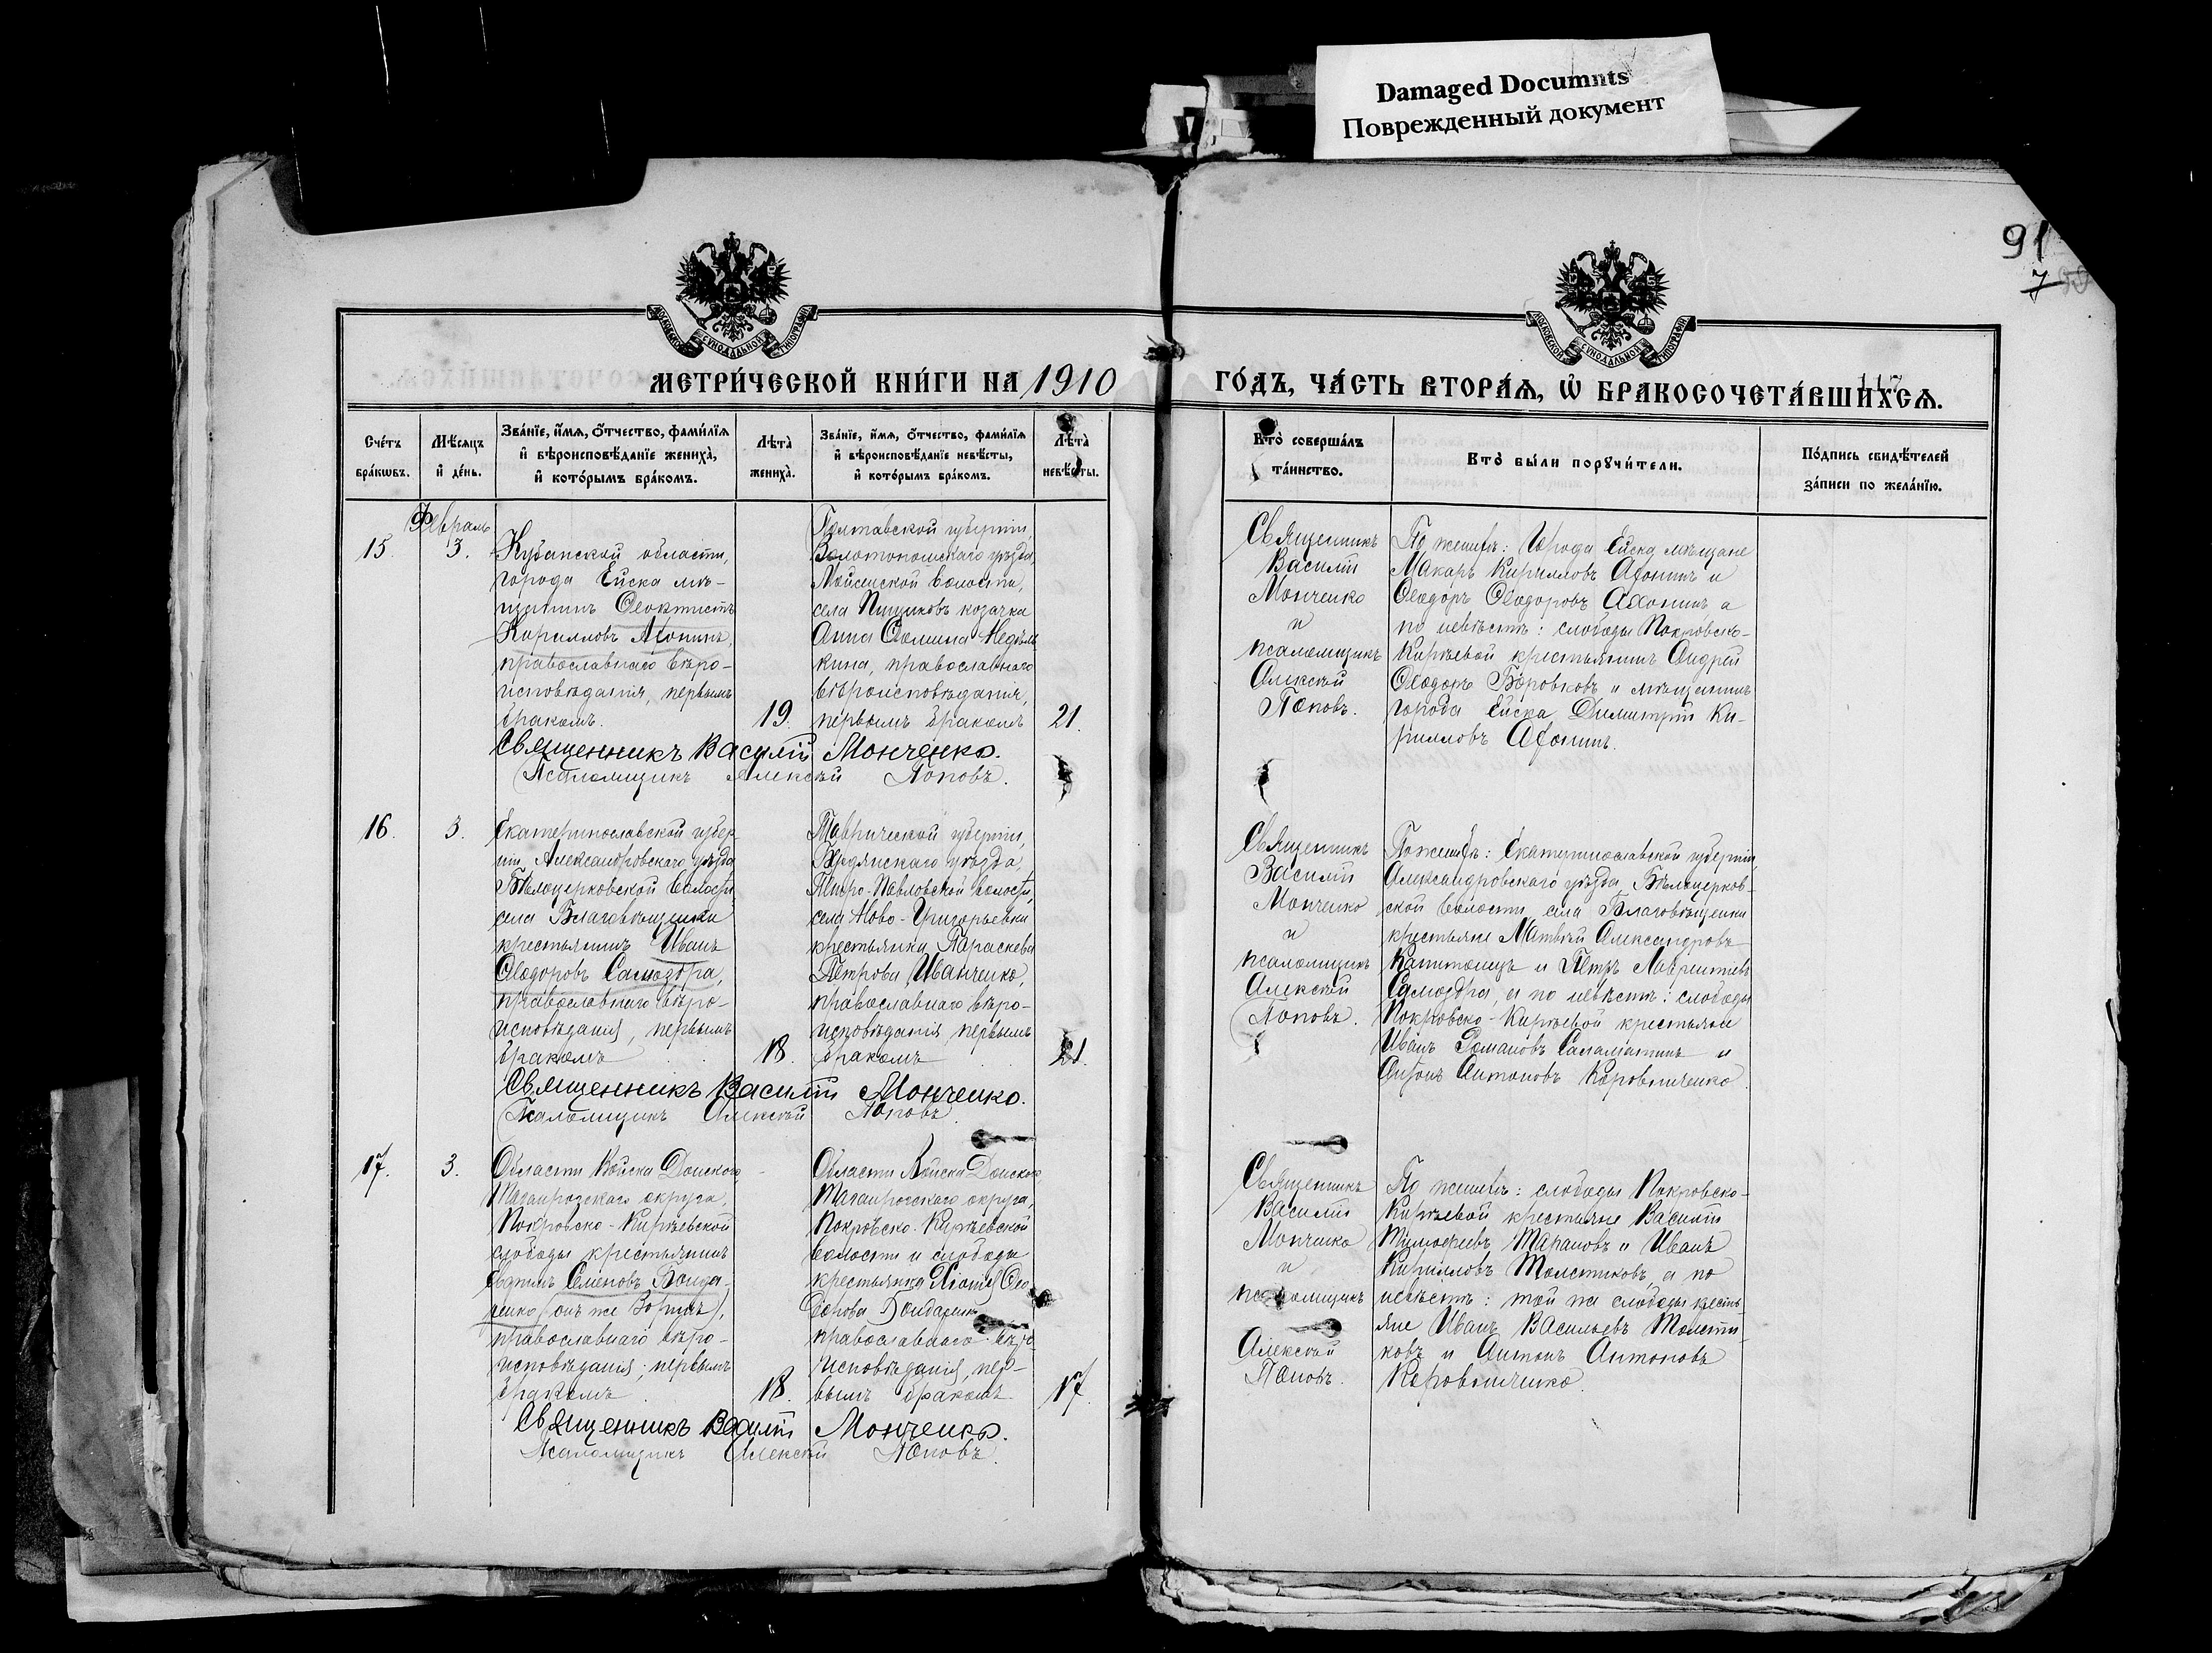 Damaged Documnts
Поврежденный документ
91
7
117
МОСКОВСКОЙ СѴНОДАЛЬНОЙ ТИПОГРАФІИ
МОСКОВСКОЙ СѴНОДАЛЬНОЙ ТИПОГРАФІИ
МЕТРИ́ЧЕСКОЙ КНИ́ГИ НА 1910 ГО́ДЪ, ЧА́СТЬ ВТОРА́Ѧ, Ѽ БРАКОСОЧЕТА́ВШИХСѦ.
Сче́тъ
бра́кѡвъ.
Мѣ́сяцъ
и҆ де́нь.
Зва́нїе, и҆́мѧ, ѻ҆́тчество, фами́лїѧ
и҆ вѣроисповѣ́данїе жениха̀,
и҆ кото́рымъ бра́комъ.
Лѣ́та
жениха̀.
Зва́нїе, и҆́мѧ, ѻ҆́тчество, фами́лїѧ
и҆ вѣроисповѣ́данїе невѣ́сты,
и҆ кото́рымъ бра́комъ.
Лѣ́та
невѣ́сты.
Кто̀ соверша́лъ
та́инство.
Кто̀ бы́ли порꙋчи́тели.
По́дпись свидѣ́телей
за́писи по жела́нїю.
Февраль
15.
3.
Кубанской области,
города Ейска мѣ-
щанинъ Ѳеоктистъ
Кирилловъ Аѳонинъ,
православнаго вѣро-
исповѣданія, первымъ
бракомъ.
19.
Полтавской губерніи
Золотоношскаго уѣзда,
волости,
села Пищиковъ козачка
Анна Ѳомина Недѣль
кина, православнаго
вѣроисповѣданія,
первымъ бракомъ
21.
Священникъ
Василій
Монченко
и
псаломщикъ
Алексѣй
Поповъ.
По женихѣ: города Ейска мѣщане
Макаръ Кирилловъ Аѳонинъ и
Ѳеодоръ Ѳеодоровъ Аѳонинъ а
по невѣстѣ: слободы Покровско-
Кирѣевой крестьянинъ Андрей
Ѳеодоръ Боровковъ и мѣщанинъ
города Ейска Димитрій Ки-
рилловъ Аѳонинъ.
Священникъ Василій Монченко.
Псаломщикъ Алексѣй Поповъ.
16.
3.
Екатеринославской губер
ніи, Александровскаго уѣзда
Бѣлоцерковской волости,
села Благовѣщенки
крестьянинъ Иванъ
Ѳеодоровъ Самоздра,
православнаго вѣро-
исповѣданія, первымъ
бракомъ
18.
Таврической губерніи,
Бердянскаго уѣзда,
Петро-Павловской волости,
села Ново-Григорьевки
крестьянка Параскева
Петрова Иванченко,
православнаго вѣро-
исповѣданія, первымъ
бракомъ
21.
Священникъ
Василій
Монченко
и
псаломщикъ
Алексѣй
Поповъ.
По женихѣ: Екатеринославской губерніи,
Александровскаго уѣзда, Бѣлоцерков-
ской волости, села Благовѣщенки
крестьяне Матвѣй Александровъ
и Петръ Лаврентіевъ
Самоздра, а по невѣстѣ: слободы
Покровско-Кирѣевой крестьяне
Иванъ Романовъ Саламатинъ и
Антонъ Антоновъ Коровниченко.
Священникъ Василій Монченко.
Псаломщикъ Алексѣй Поповъ
17.
3.
Области Войска Донского
Таганрогскаго округа,
Покровско-Кирѣевской
слободы крестьянинъ
Семеновъ Бонда-
ренко (онъ же ),
православнаго вѣро-
исповѣданія, первымъ
бракомъ
18.
Области Войска Донского,
Таганрогскаго округа,
Покровско-Кирѣевской
волости и слободы
крестьянка Ѳео
дорова Бондаренко
православнаго вѣро
исповѣданія, пер-
вымъ бракомъ
17.
Священникъ
Василій
Монченко
и
псаломщикъ
Алексѣй
Поповъ.
По женихѣ: слободы Покровско-
Кирѣевой крестьяне Василій
Тимоѳеевъ Тарановъ и Иванъ
Кирилловъ Толстиковъ, а по
невѣстѣ: той же слободы кресть-
яне Иванъ Васильевъ Толсти-
ковъ и Антонъ Антоновъ
Коровниченко.
Священникъ Василій Монченко.
Псаломщикъ Алексѣй Поповъ.